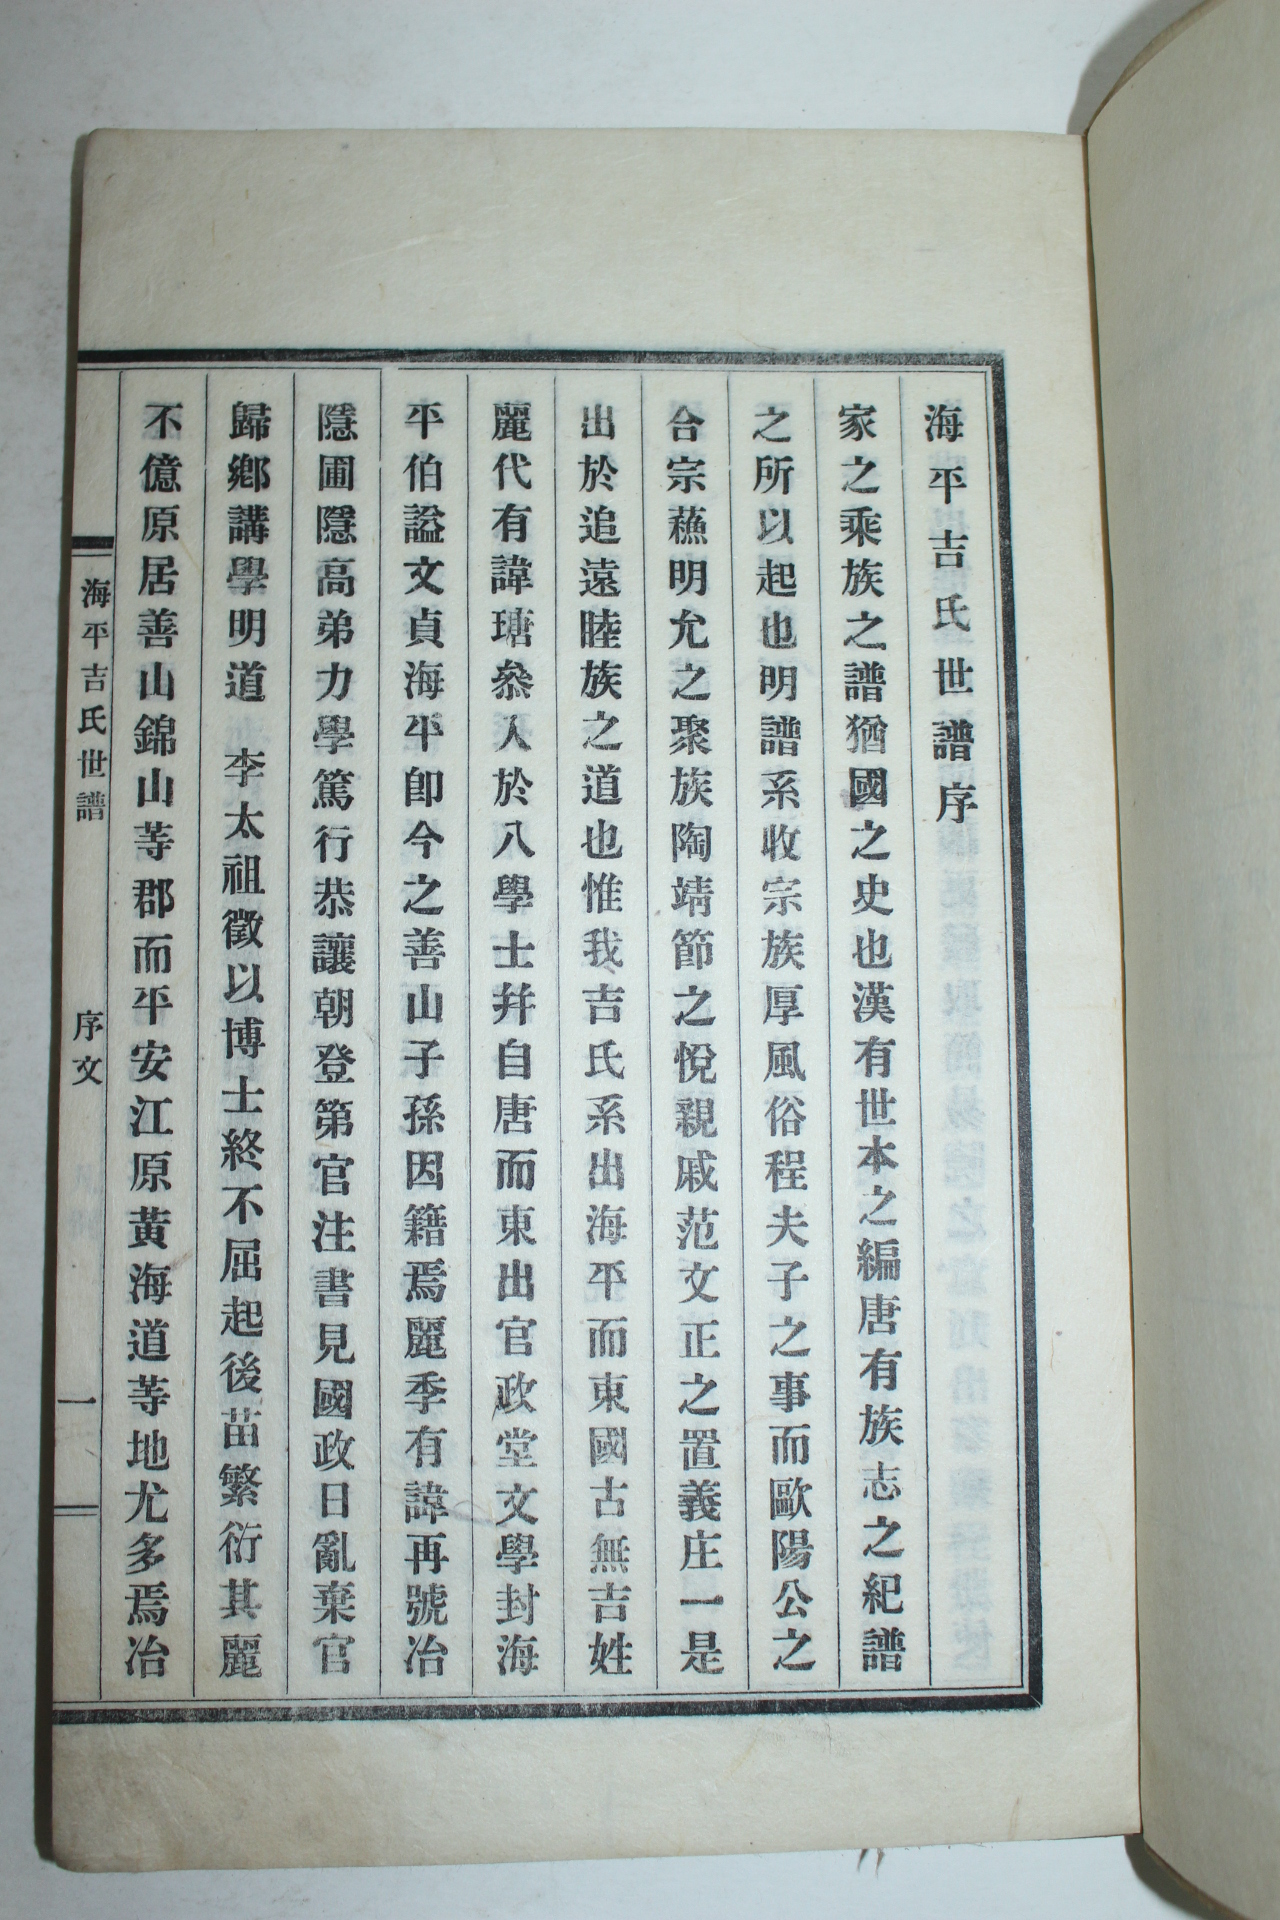 海平吉氏世譜序
家之乘族之譜猶國之史也漢有世本之編唐有族志之紀譜
之所以起也明譜系收宗族厚風俗程夫子之事而歐陽公之
合宗蘓明允之聚族陶靖節之悅親戚范文正之置義庄一是
出於追遠睦族之道也惟我吉氏系出海平而東國古無吉姓
麗代有諱瑭叅入於八學士幷自唐而東出官政堂文學封海
平伯謚文貞海平卽今之善山子孫因籍焉麗季有諱再號冶
隱圃隱高弟力學篤行恭讓朝登第官注書見國政日亂棄官
歸鄕講學明道 李太祖徵以博士終不屈起後苗繁衍其麗
不億原居善山錦山等郡而平安江原黃海道等地尤多焉冶
海平吉氏世譜 序文 一